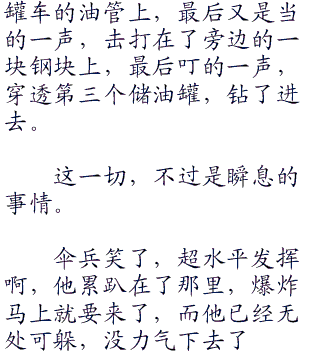 罐车的油管上，最后又是当
的一声，击打在了旁边的一
块钢块上，最后叮的一声，
穿透第三个储油罐，钻了进
去。
这一切，不过是瞬息的
事情。
伞兵笑了，超水平发挥
啊，他累趴在了那里，爆炸
马上就要来了，而他已经无
处可躲，没力气下去了